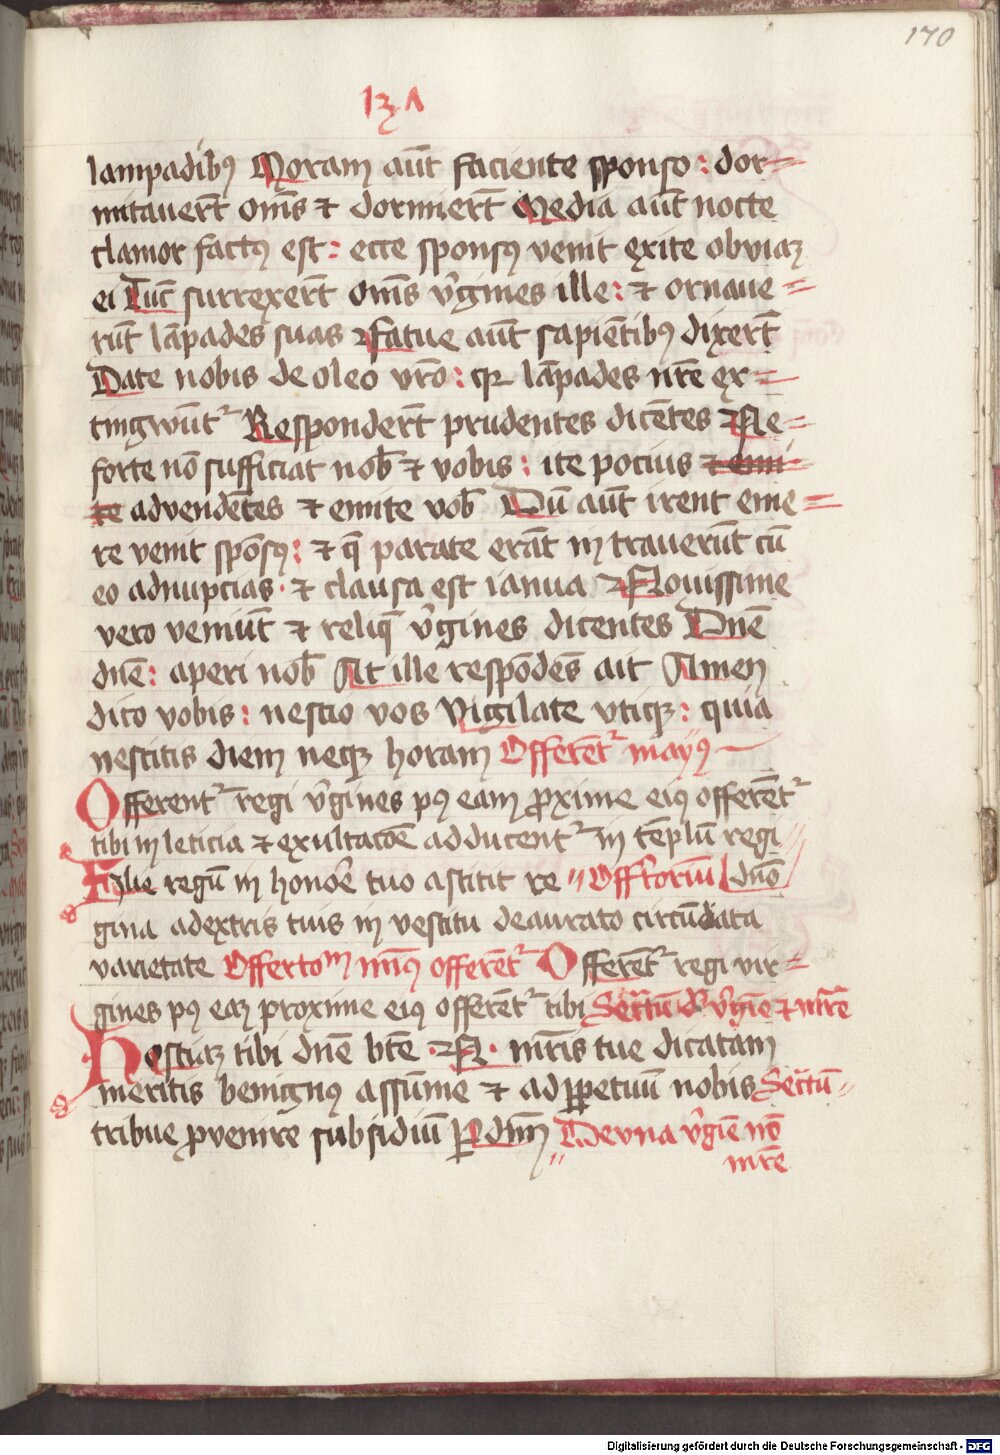 170
131
lampadibꝰ Moram aūt faciente sponso : dor=
mitauer̄t om̄s ⁊ dormier̄t Media aūt nocte
clamor factꝰ est : ecce sponsꝰ venit exite obviaꝫ
ei Tūc surrexer̄t om̄s v̓gines ille : ⁊ ornaue=
rūt lāpades suas Fatue aūt sapiētibꝰ dixer̄t
Date nobis de oleo vr̄o : qꝛ lāpades nr̄e ex=
tingwūtᷣ Responder̄t prudentes dicētes Ne=
forte nō sufficiat nob̄ ⁊ vobis : ite pocius ⁊ emi
te advendētes ⁊ emite vob̄ Dū aūt irent eme=
re venit spōsꝰ : ⁊ q̄ parate erāt in trauerūt cū
eo adnupcias · ⁊ clausa est ianua Nouissime
vero veniūt ⁊ reliq̄ v̓gines dicentes Dn̄e
dn̄e : aperi nob̄ At ille respōdēs ait Amen
dico vobis : nescio vos Vigilate vtiqꝫ : quia
nescitis diem neqꝫ horam Offerēt᷑ mayꝰ
Offerent᷑ regi v̓gines pꝰ eam ꝓxime eiꝰ offerēt᷑
tibi in leticia ⁊ exultacōe adducent᷑ in tēplū regi
Filie regū in honōe tuo astitit re " Offtoriū dn̄o
gina adextris tuis in vestitu deaurato circūdata
varietate Offertoᵐ minꝰ offerēt᷑ Offerēt᷑ regi vir=
gines pꝰ eaꝫ proxime eiꝰ offerēt᷑ tibi Secrtū d' v̓gīe ⁊ mr̄e
Hostiaꝫ tibi dn̄e btē · N · mr̄is tue dicatam
meritis benignꝰ assūme ⁊ adꝑpetuū nobis Secrtū
tribue ꝓvenire subsidiū P dnm̄ De vna v̓gīe nō
mr̄e
Digitalisierung gefördert durch die Deutsche Forschungsgemeinschaft - DFG